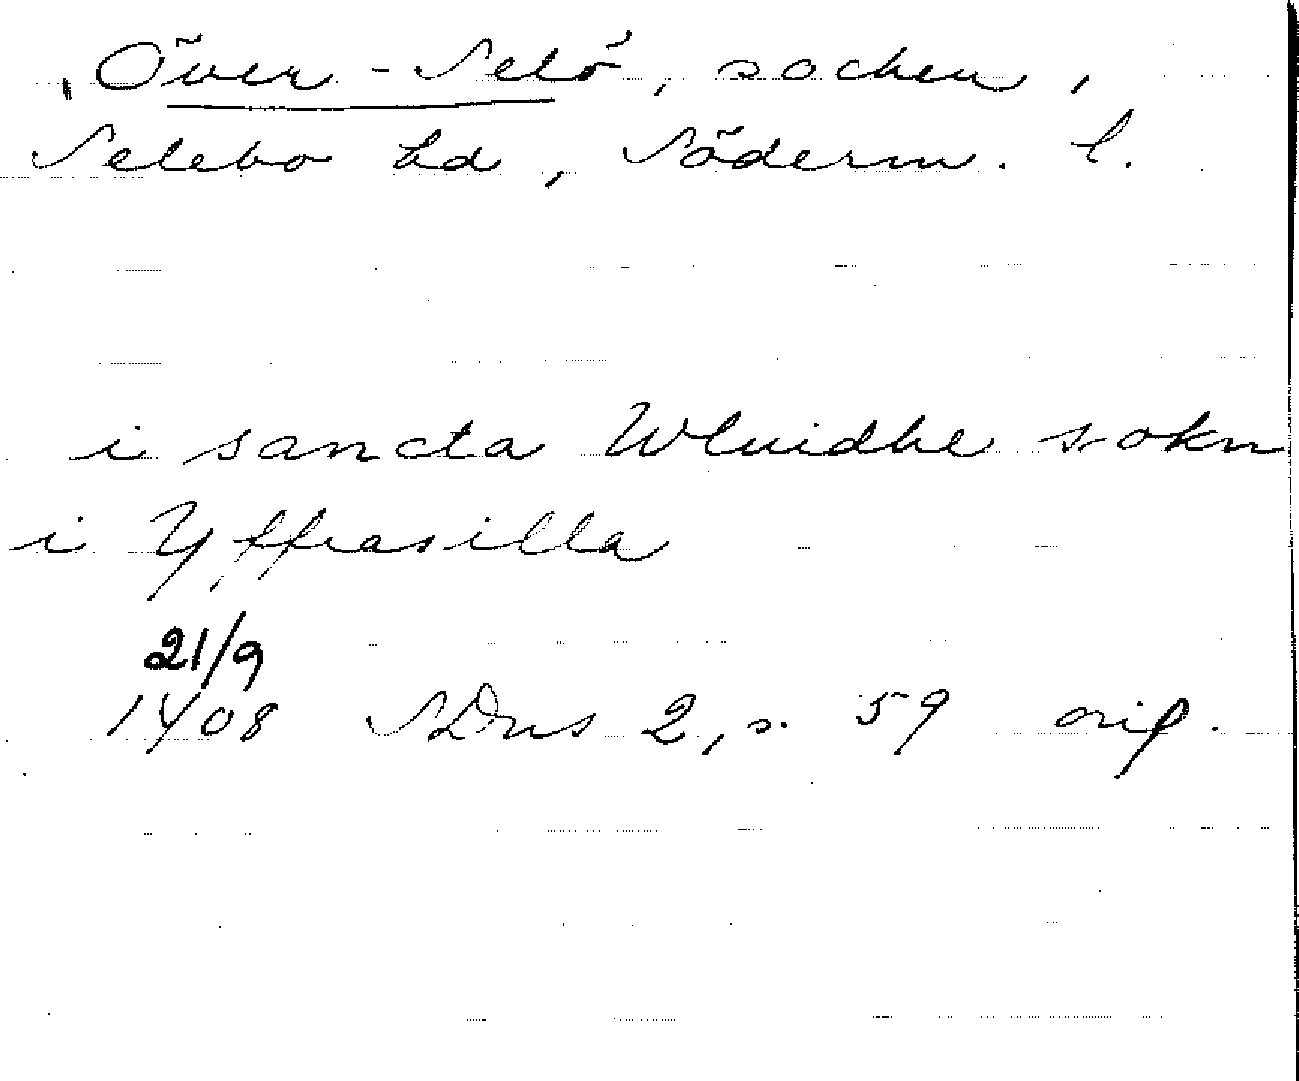 Över-Selö, socken,
Selebo hd, Söderm. l.
i sancta Wluidhe sokn
i Yffrasilla
21/9
1408 SDns 2, s. 59 orig.